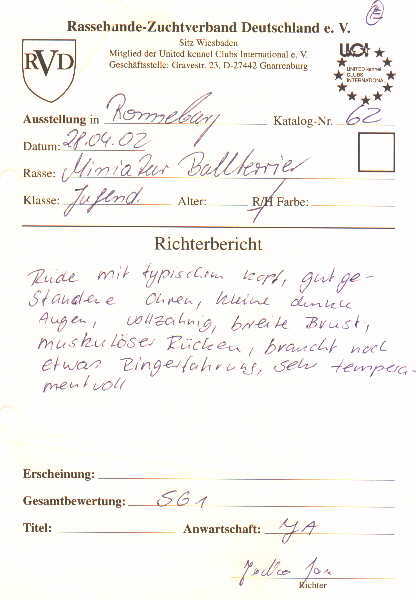 Rassehunde-Zuchtverband Deutschland e. V.
Sitz Wiesbaden
Mitglied der United kennel Clubs International e. V.
Geschäftsstelle: Gravestr. 23, D-27442 Gnarrenburg
RVD
UCI
UNITED kennel
CLUBS
INTERNATIONAL
Ausstellung in Ronneburg Katalog-Nr. 62
Datum: 28.04.02
Rasse: Miniatur Bullterrier
Klasse: Jugend Alter: R/H Farbe:
Richterbericht
Rüde mit typischem Kopf, gut ge-
standene Ohren, kleine dunkle
Augen, vollzahnig, breite Brust,
muskulöser Rücken, braucht noch
etwas Ringerfahrung, sehr tempera-
mentvoll
Erscheinung:
Gesamtbewertung: SG 1
Titel: Anwartschaft: JA
Richter